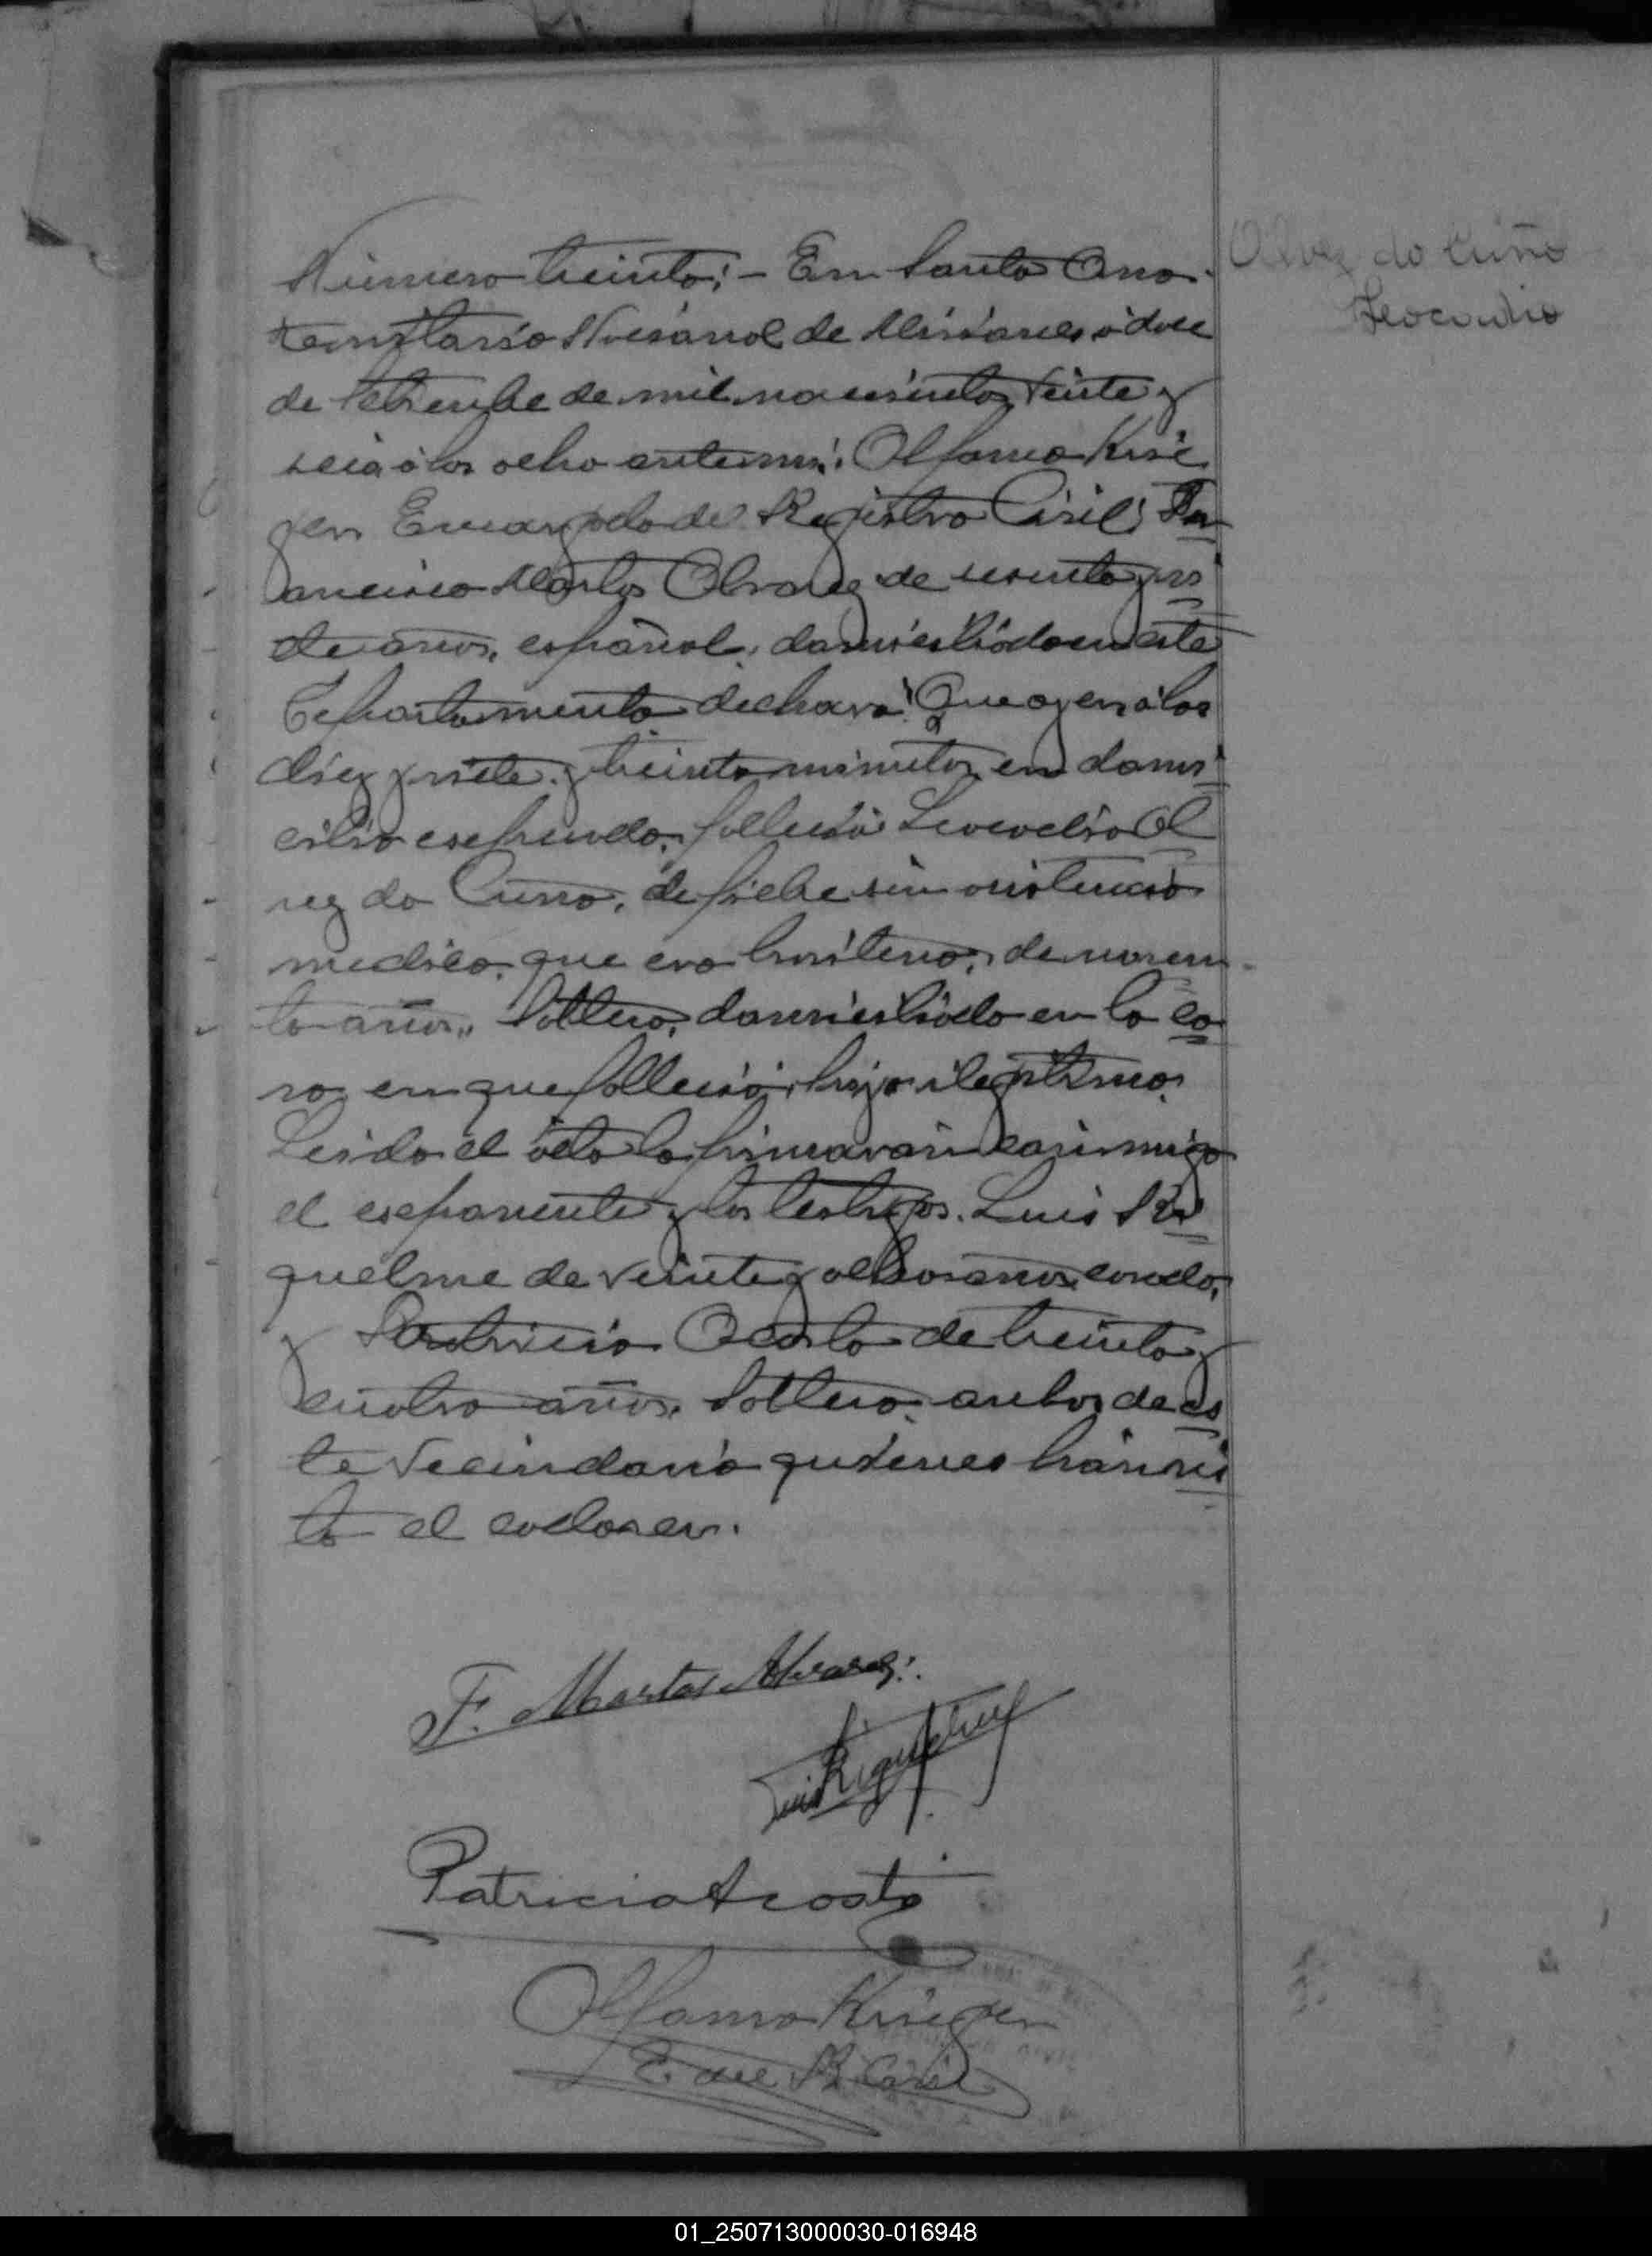 Número treinta: - En Santa Ana
territorio Nacional de Misiones, á doce
de Setiembre de mil novecientos veinte y
seis, á las ocho ante mi: Alfonso Krie
ger Encargado del Registro Civil; Fr
ancisco Martos Alvarez de sesenta y si
ete años, español, domiciliado en este
Departamento declaro: Que ayer á las
diez y siete y treinta minutos, en domi
cilio espresado, falleció Leocadio Al
vez do Cuño, de fiebre sin asistencia
medica, que era brasilero, de noven
ta años, soltero, domiciliado en la ca
sa en que falleció, hijo ilegitimo.
Leida el acta la firmaron conmigo
el esponente y los testigos. Luis Ri
quelme de veinte y ocho años, casado,
y Patricio Acosta de treinta y
cuatro años, soltero, ambos de es
te vecindario quienes han vis
to el cadaver.
Alvez do Cuño
Leocadio
F. Martos Alvarez
Luis Riquelme
Patricio Acosta
Alfonso Krieger
Enc R. Civil
01_250713000030-016948